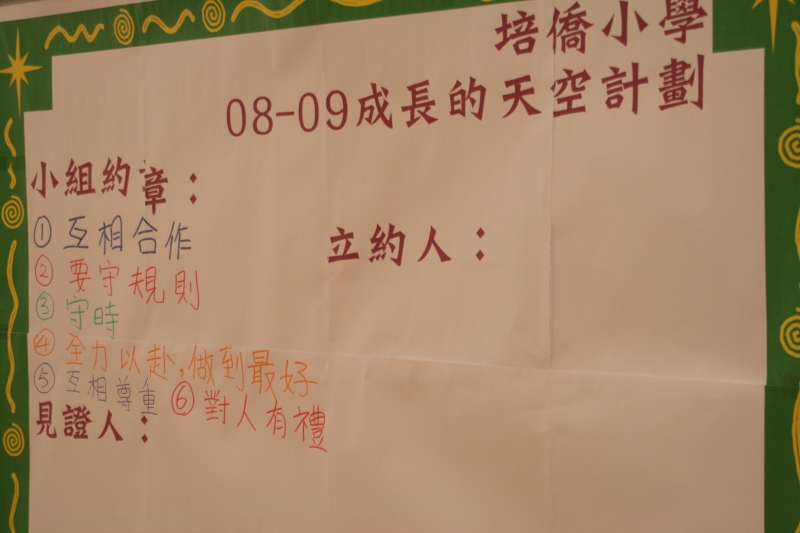 培僑小學
08-09成長的天空計劃
小組約章：
立約人：
①互相合作
②要守規則
③守時
④全力以赴,做到最好
⑤互相尊重 ⑥對人有禮
見證人：